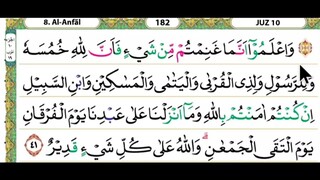 8. Al-Anfāl 182 JUZ 10
وَاعْلَمُوْٓا اَنَّمَا غَنِمْتُمْ مِّنْ شَيْءٍ فَاَنَّ لِلّٰهِ خُمُسَهٗ
وَلِلرَّسُوْلِ وَلِذِى الْقُرْبٰى وَالْيَتٰمٰى وَالْمَسٰكِيْنِ وَابْنِ السَّبِيْلِ
اِنْ كُنْتُمْ اٰمَنْتُمْ بِاللّٰهِ وَمَآ اَنْزَلْنَا عَلٰى عَبْدِنَا يَوْمَ الْفُرْقَانِ
يَوْمَ الْتَقَى الْجَمْعٰنِۗ وَاللّٰهُ عَلٰى كُلِّ شَيْءٍ قَدِيْرٌ ٤١